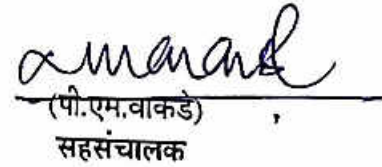 (पी.एम.वाकडे)
सहसंचालक